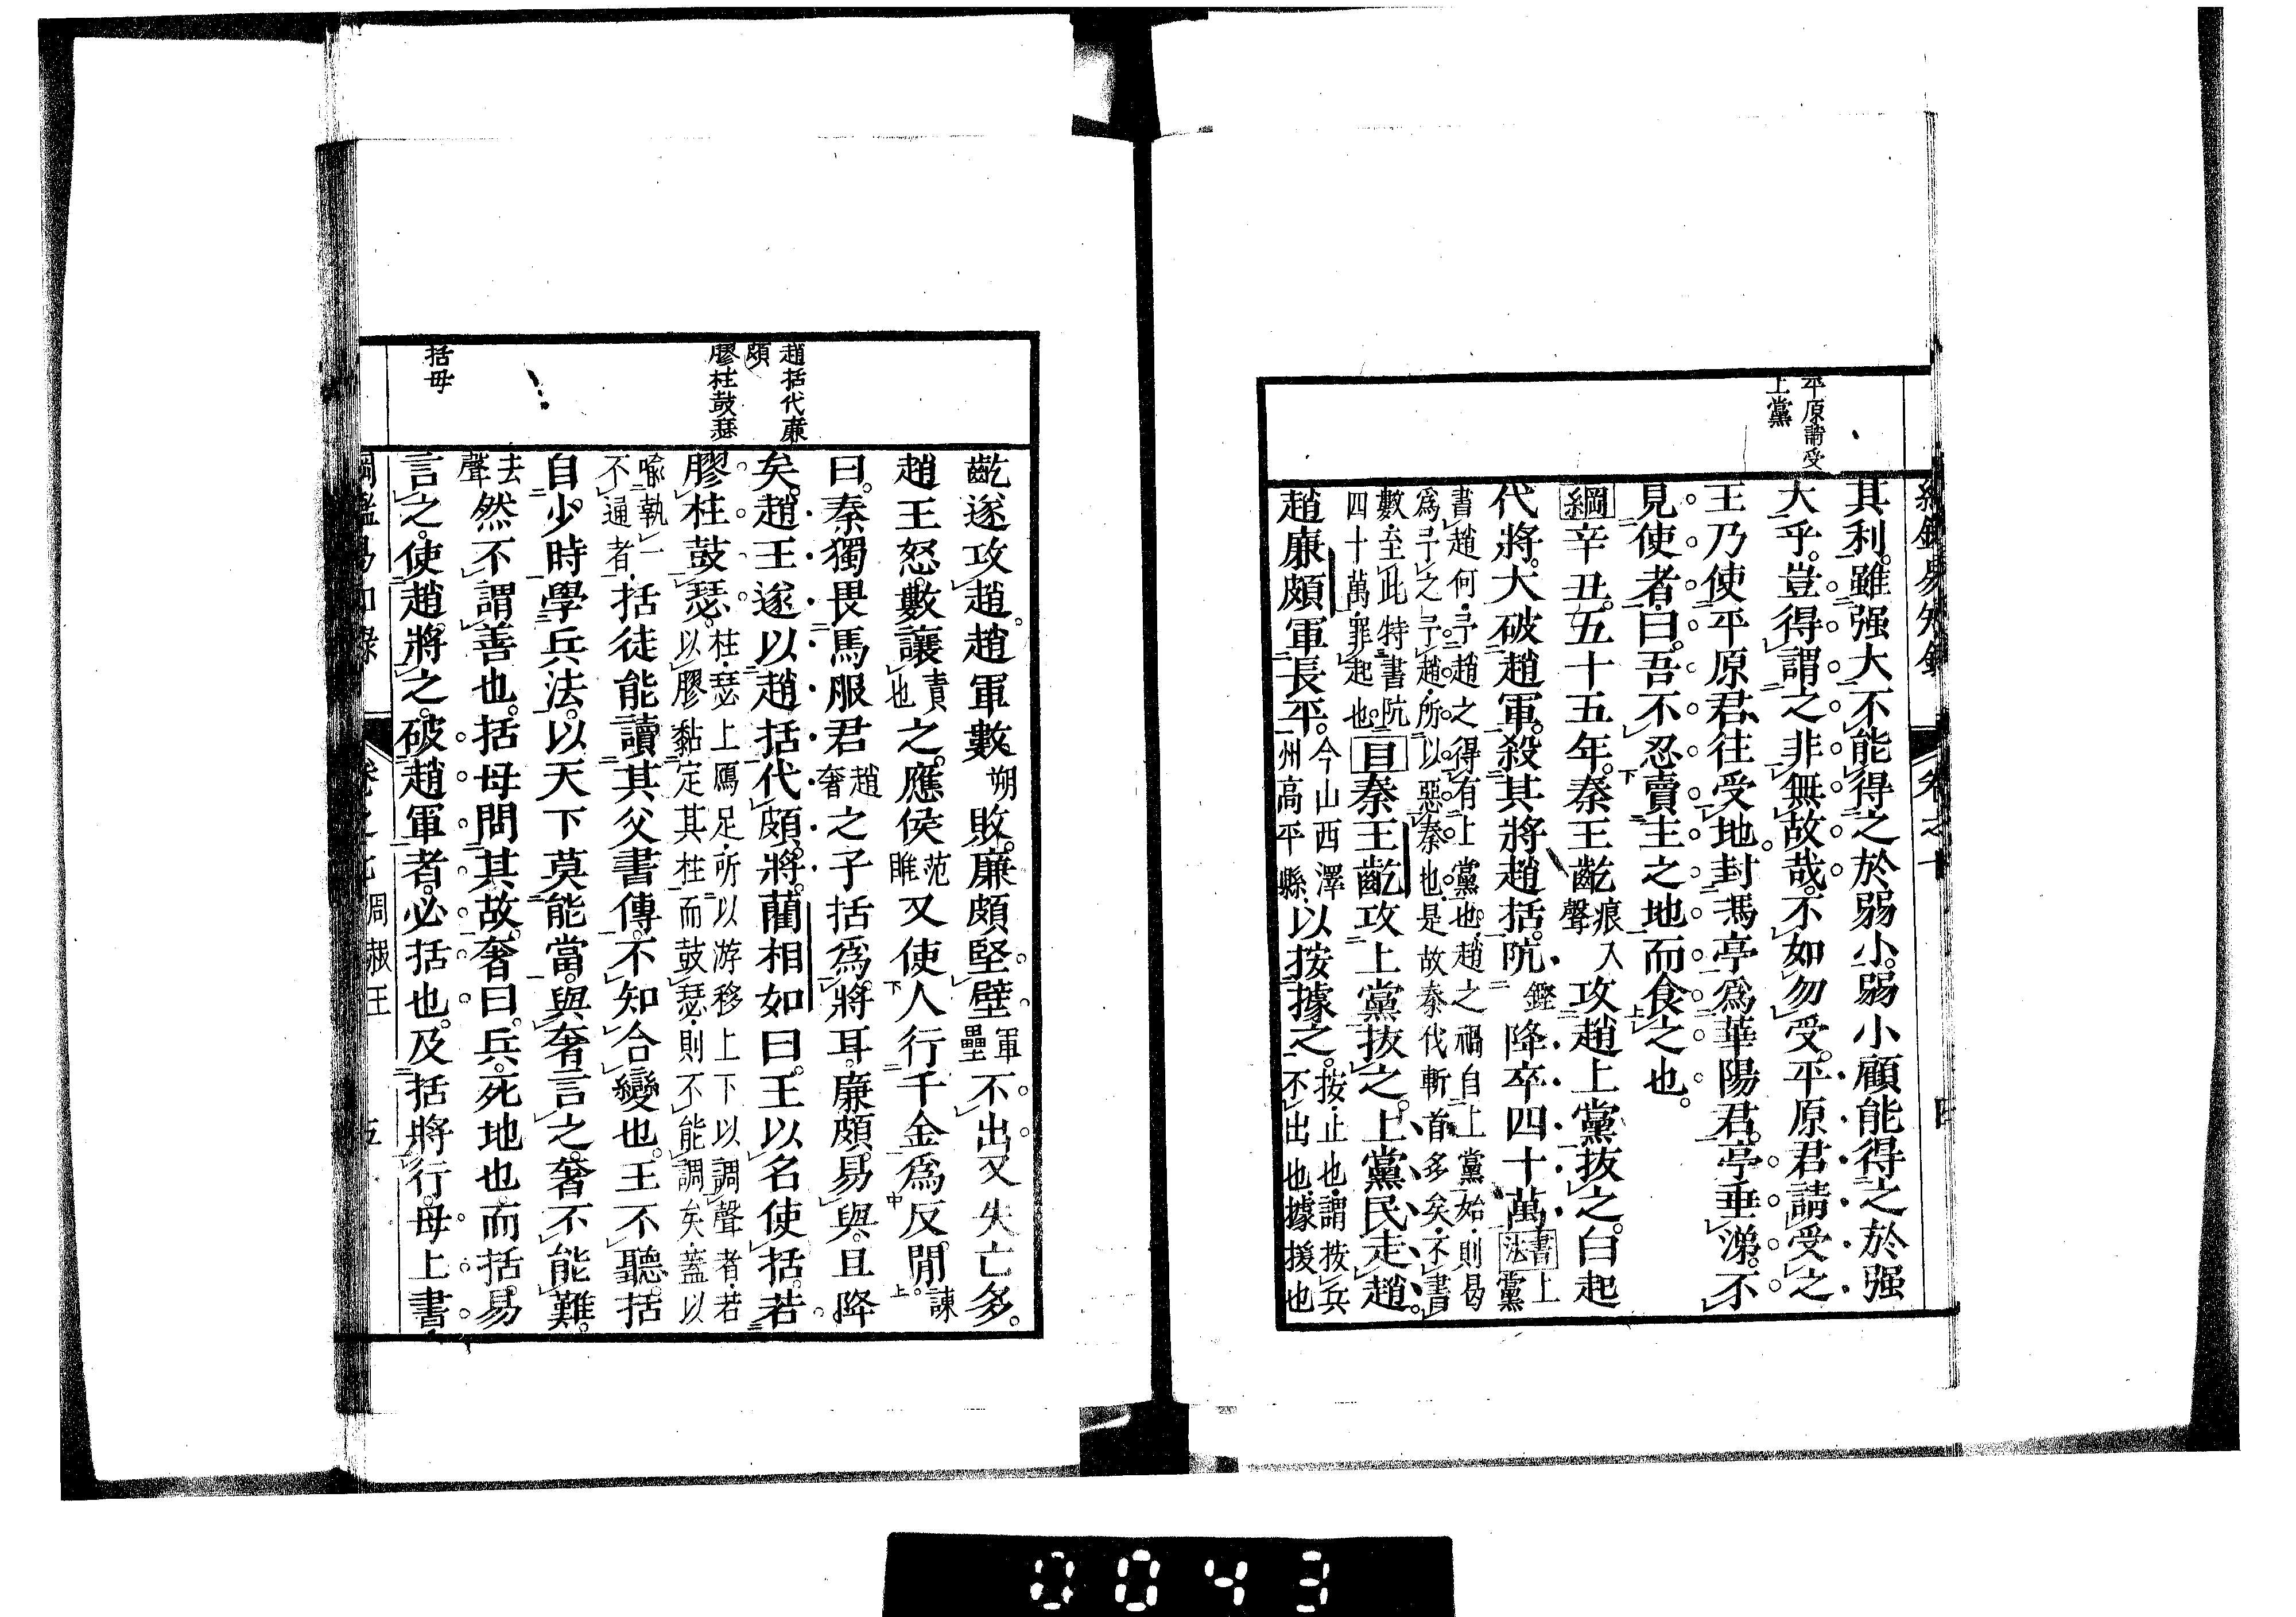 平原請受
上黨
其利。雖强大不能得之於弱小。弱小顧能得之於强
大乎。豈得謂之非無故哉。不如勿受。平原君請受之
王乃使平原君往受地。封馮亭爲華陽君。亭垂涕。不
見使者。曰。吾不忍賣主之地而食之也。
綱辛丑。五十五年。秦王齕痕入聲攻趙上黨拔之。白起
代將。大破趙軍。殺其將趙括。阬鏗降卒四十萬書法上黨
書趙何予趙之得有上黨也趙之禍自上黨始則曷
爲予之予趙所以惡秦也是故秦伐斬首多矣不書
數至此特書阬
四十萬罪起也目秦王齕攻上黨拔之。上黨民走趙。
趙廉頗軍長平。今山西澤州高平縣以按據之。按止也謂按兵不出也據援也
趙括代廉
頗
膠柱鼓瑟
括母
齕遂攻趙。趙軍數朔敗。廉頗堅壁軍壘不出又失亡多。
趙王怒。數讓責也之。應侯范雎又使人行千金爲反閒。諫
曰。秦獨畏馬服君趙奢之子括爲將耳。廉頗易與。且降
矣。趙王遂以趙括代頗將。藺相如曰。王以名使括。若
膠柱鼓瑟。柱瑟上鴈足所以游移上下以調聲者若以膠黏定其柱而鼓瑟則不能調矣蓋以
喩執一不通者括徒能讀其父書傳。不知合變也。王不聽。括
自少時學兵法。以天下莫能當。與奢言之。奢不能難。
去聲然不謂善也。括母問其故。奢曰。兵。死地也。而括易
言之。使趙將之。破趙軍者。必括也。及括將行。母上書
0043